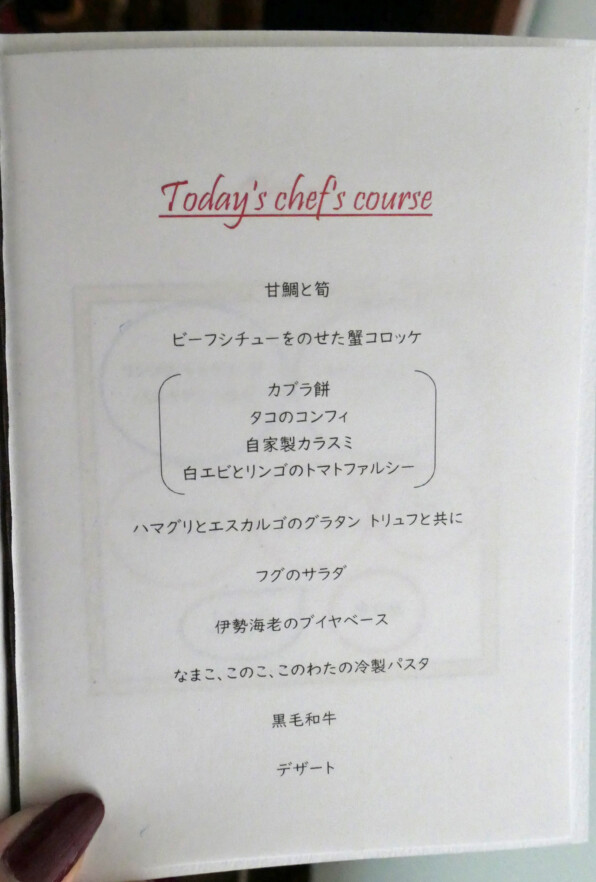 Today's chef's course
甘鯛と筍
ビーフシチューをのせた蟹コロッケ
カブラ餅
タコのコンフィ
自家製カラスミ
白エビとリンゴのトマトファルシー
ハマグリとエスカルゴのグラタン トリュフと共に
フグのサラダ
伊勢海老のブイヤベース
なまこ、このこ、このわたの冷製パスタ
黒毛和牛
デザート